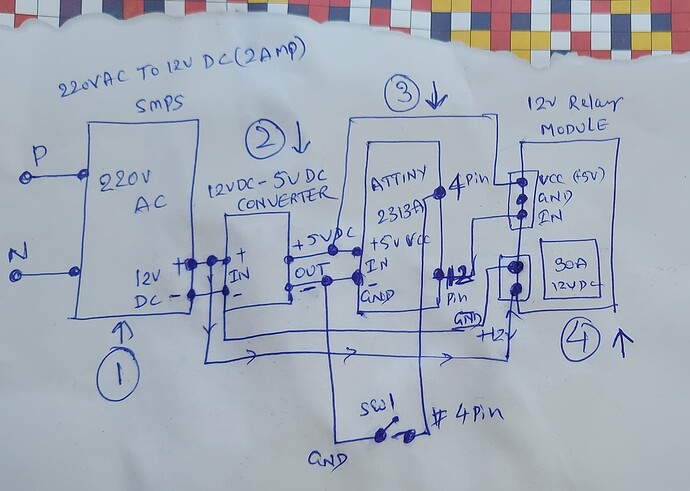 220VAC TO 12V DC (2AMP)
SMPS
P
220V
AC
N
12V
DC
+
-
1
2
12VDC - 5VDC
CONVERTER
+
IN
-
+5VDC
OUT
-
3
ATTINY
2313A
4 Pin
+5V VCC
IN
-
GND
12
Pin
12V Relay
MODULE
VCC (+5V)
GND
IN
30A
12VDC
GND
+12V
4
SW1
# 4Pin
GND